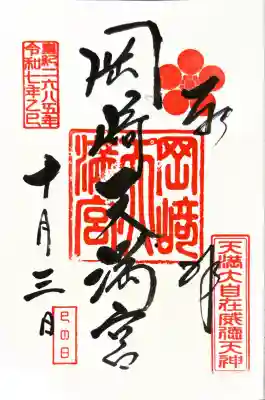 奉拝
天満大自在威徳天神
岡崎天満宮
岡﨑天満宮
皇紀二六八五年
令和七年乙巳
十月三日
巳の日